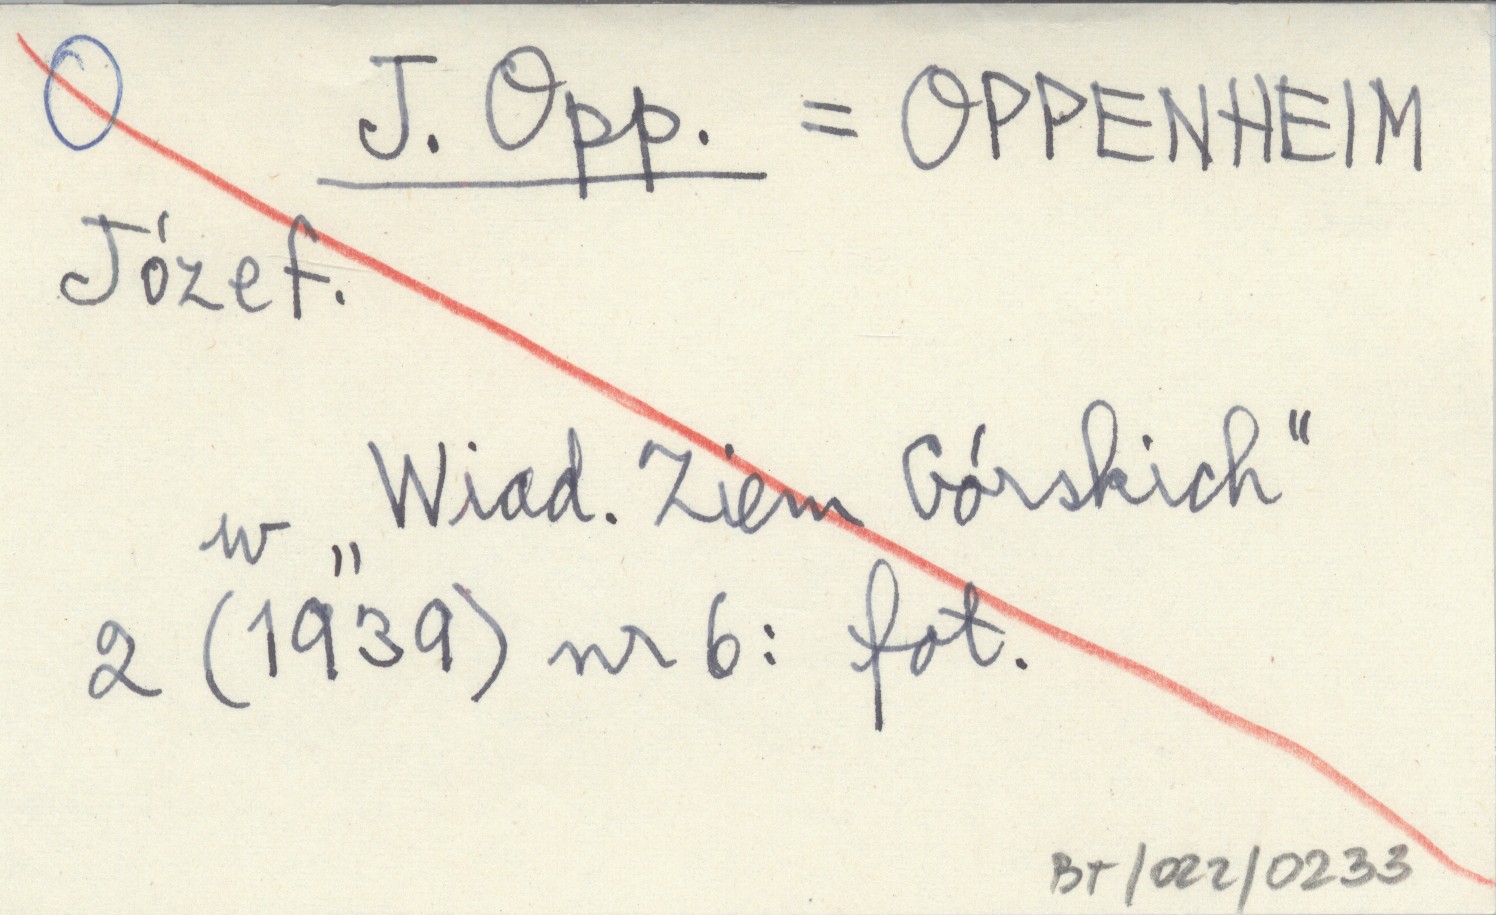 O J. Opp. = OPPENHEIM
Józef.
w „Wiad. Ziem Górskich"
2 (1939) nr 6: fot.
BT/022/0233